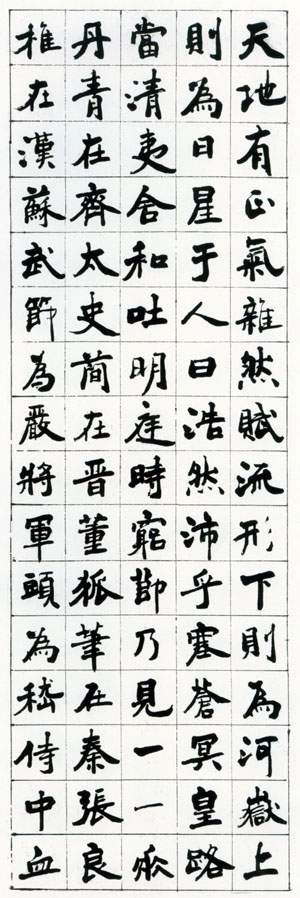 天地有正氣雜然賦流形下則為河嶽上
則為日星于人曰浩然沛乎塞蒼冥皇路
當清夷含和吐明庭時窮節乃見一一垂
丹青在齊太史簡在晋董狐筆在秦張良
椎在漢蘇武節為嚴將軍頭為嵇侍中血